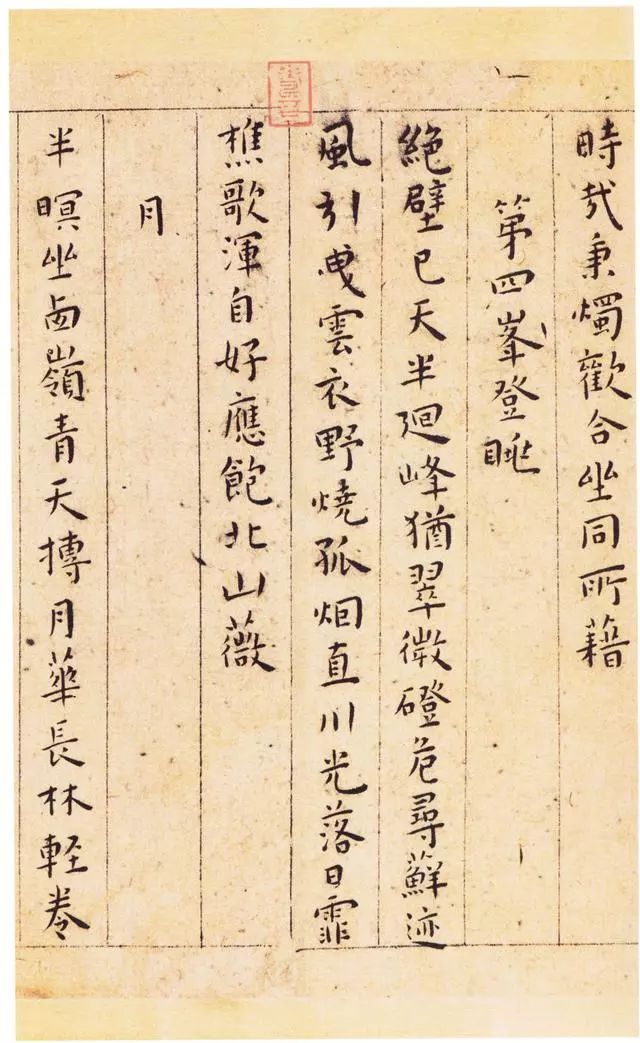 時哉秉燭歡合坐同所藉
第四峯登眺
絶壁已天半廻峰猶翠微磴危尋蘚迹
風引曳雲衣野燒孤烟直川光落日霏
樵歌渾自好應飽北山薇
月
半暝坐西嶺青天摶月華長林軽卷